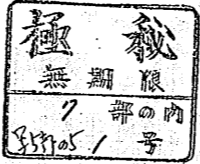 極秘
無期限
7部の内
号